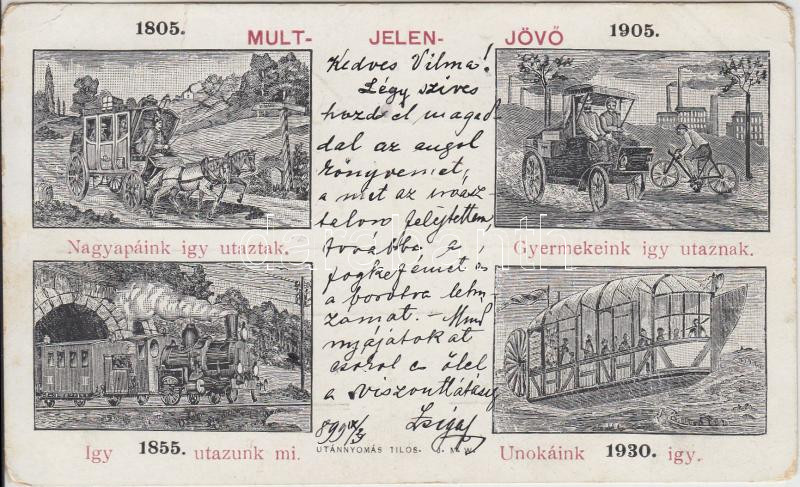 1805.
MULT- JELEN- JÖVŐ
1905.
Nagyapáink igy utaztak.
Gyermekeink igy utaznak.
Igy 1855. utazunk mi.
Unokáink 1930. igy.
Kedves Vilma!
Légy szives
hozd el magad
dal az angol
könyvemet,
a met az irasz-
talon felejtettem,
továbbá a
fogkefémet és
a borotva
számat. - Mind
nyájátokat
csókol s ölel,
a viszontlátásig
Zsiga
899 IX/3
UTÁNNYOMÁS TILOS- J. M. W.
darabanth